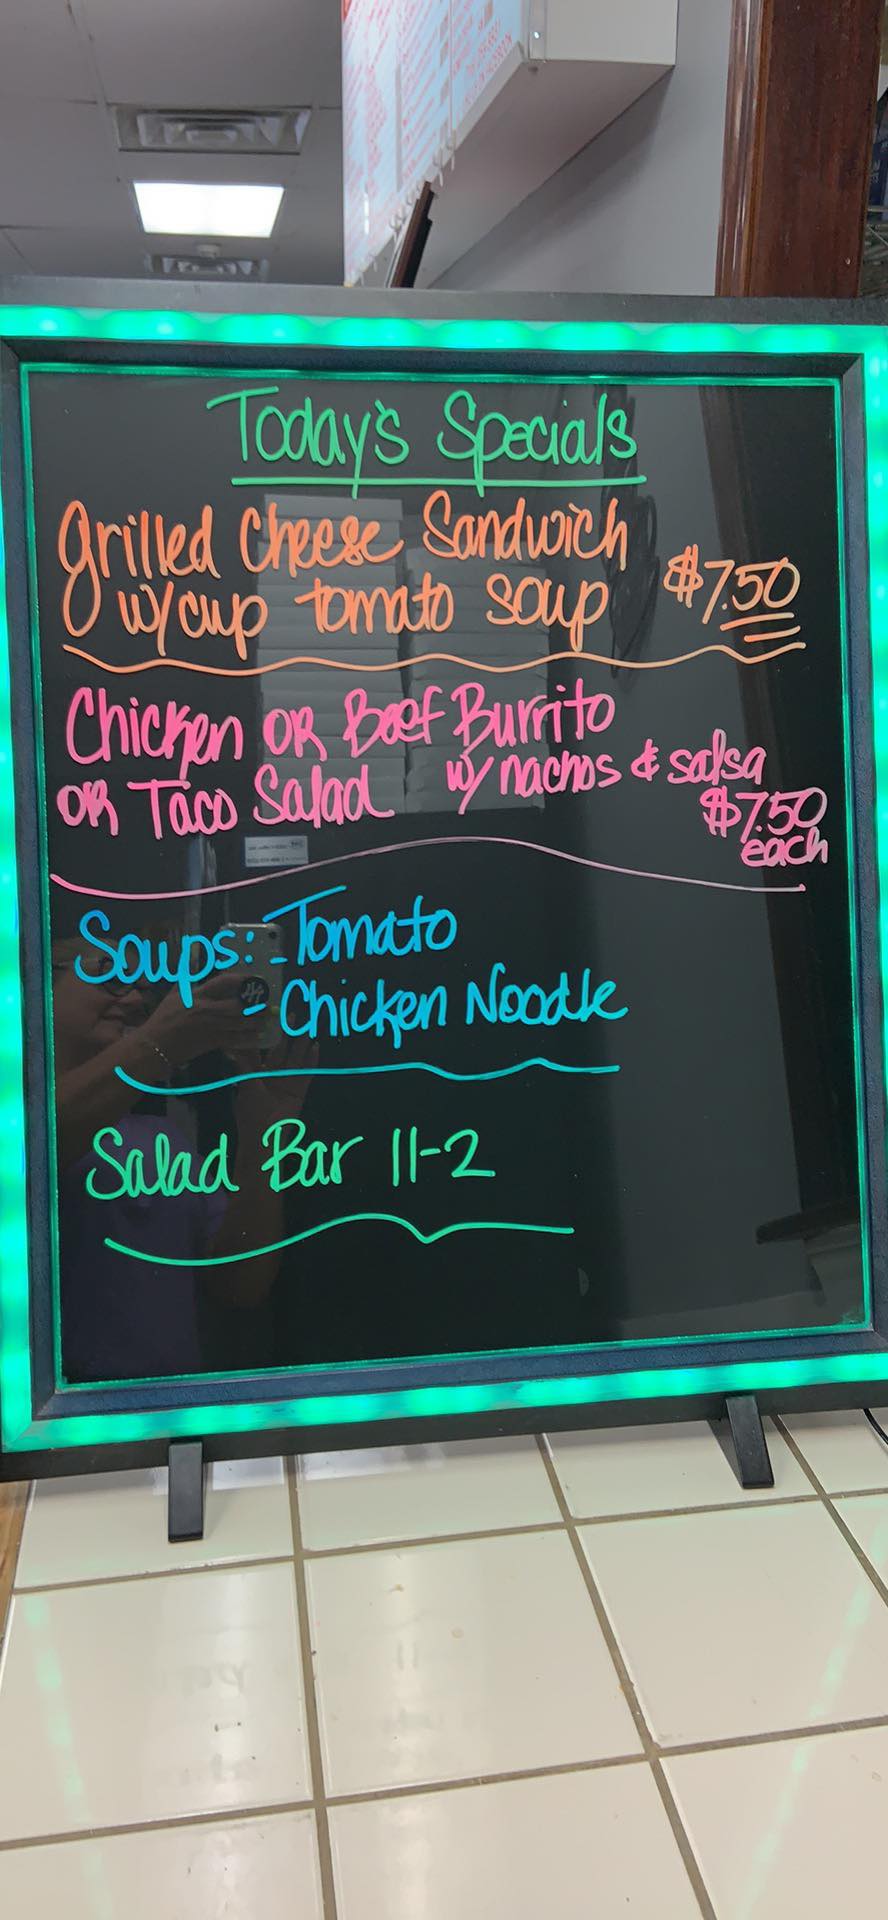 Today's Specials
Grilled Cheese Sandwich
w/cup tomato soup $7.50
Chicken OR Beef Burrito
OR Taco Salad w/ nachos & salsa
$7.50
each
Soups: - Tomato
- Chicken Noodle
Salad Bar 11-2